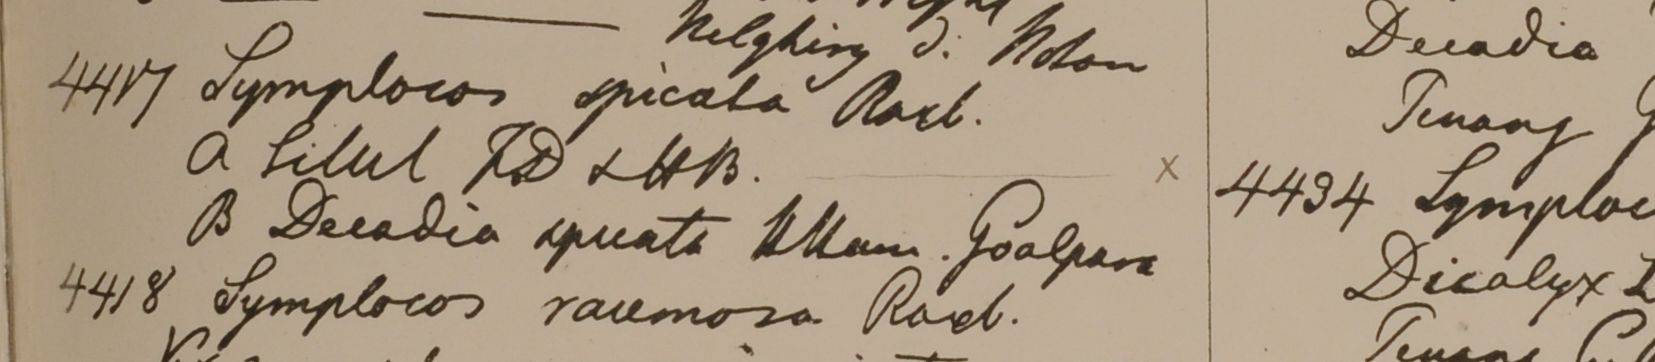 Nelghiry D. Noton
4417 Symplocos spicata Roxb.
A Silhet FD & HB. x
B Decadia spicata Hham. Goalpara
4418 Symplocos racemosa Roxb.
Decadia
Penang G
4434 Symploc
Dicalyx
Penang